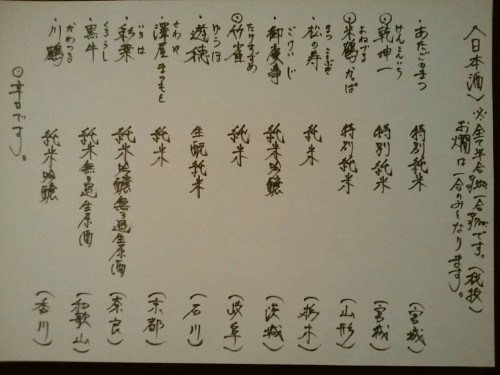 〈日本酒〉※全て半合 一合 です。(税抜)
お燗は一合のみとなります。
・あたごのまつ 特別純米 (宮城)
けんこんいち
◎乾坤一 特別純米 (宮城)
よねづる
◎米鶴かっぱ 特別純米 (山形)
まつ ことぶき
・松の寿 純米 (栃木)
ごけいじ
・御慶事 純米吟醸 (茨城)
たけすずめ
◎竹雀 純米 (岐阜)
ゆうほ
・遊穂 生酛純米 (石川)
さわや
・澤屋まつもと 純米 (京都)
いろは
・彩葉 純米吟醸無ろ過生原酒 (奈良)
くろうし
・黒牛 純米無ろ過生原酒 (和歌山)
かわつる
・川鶴 純米吟醸 (香川)
◎辛口です。